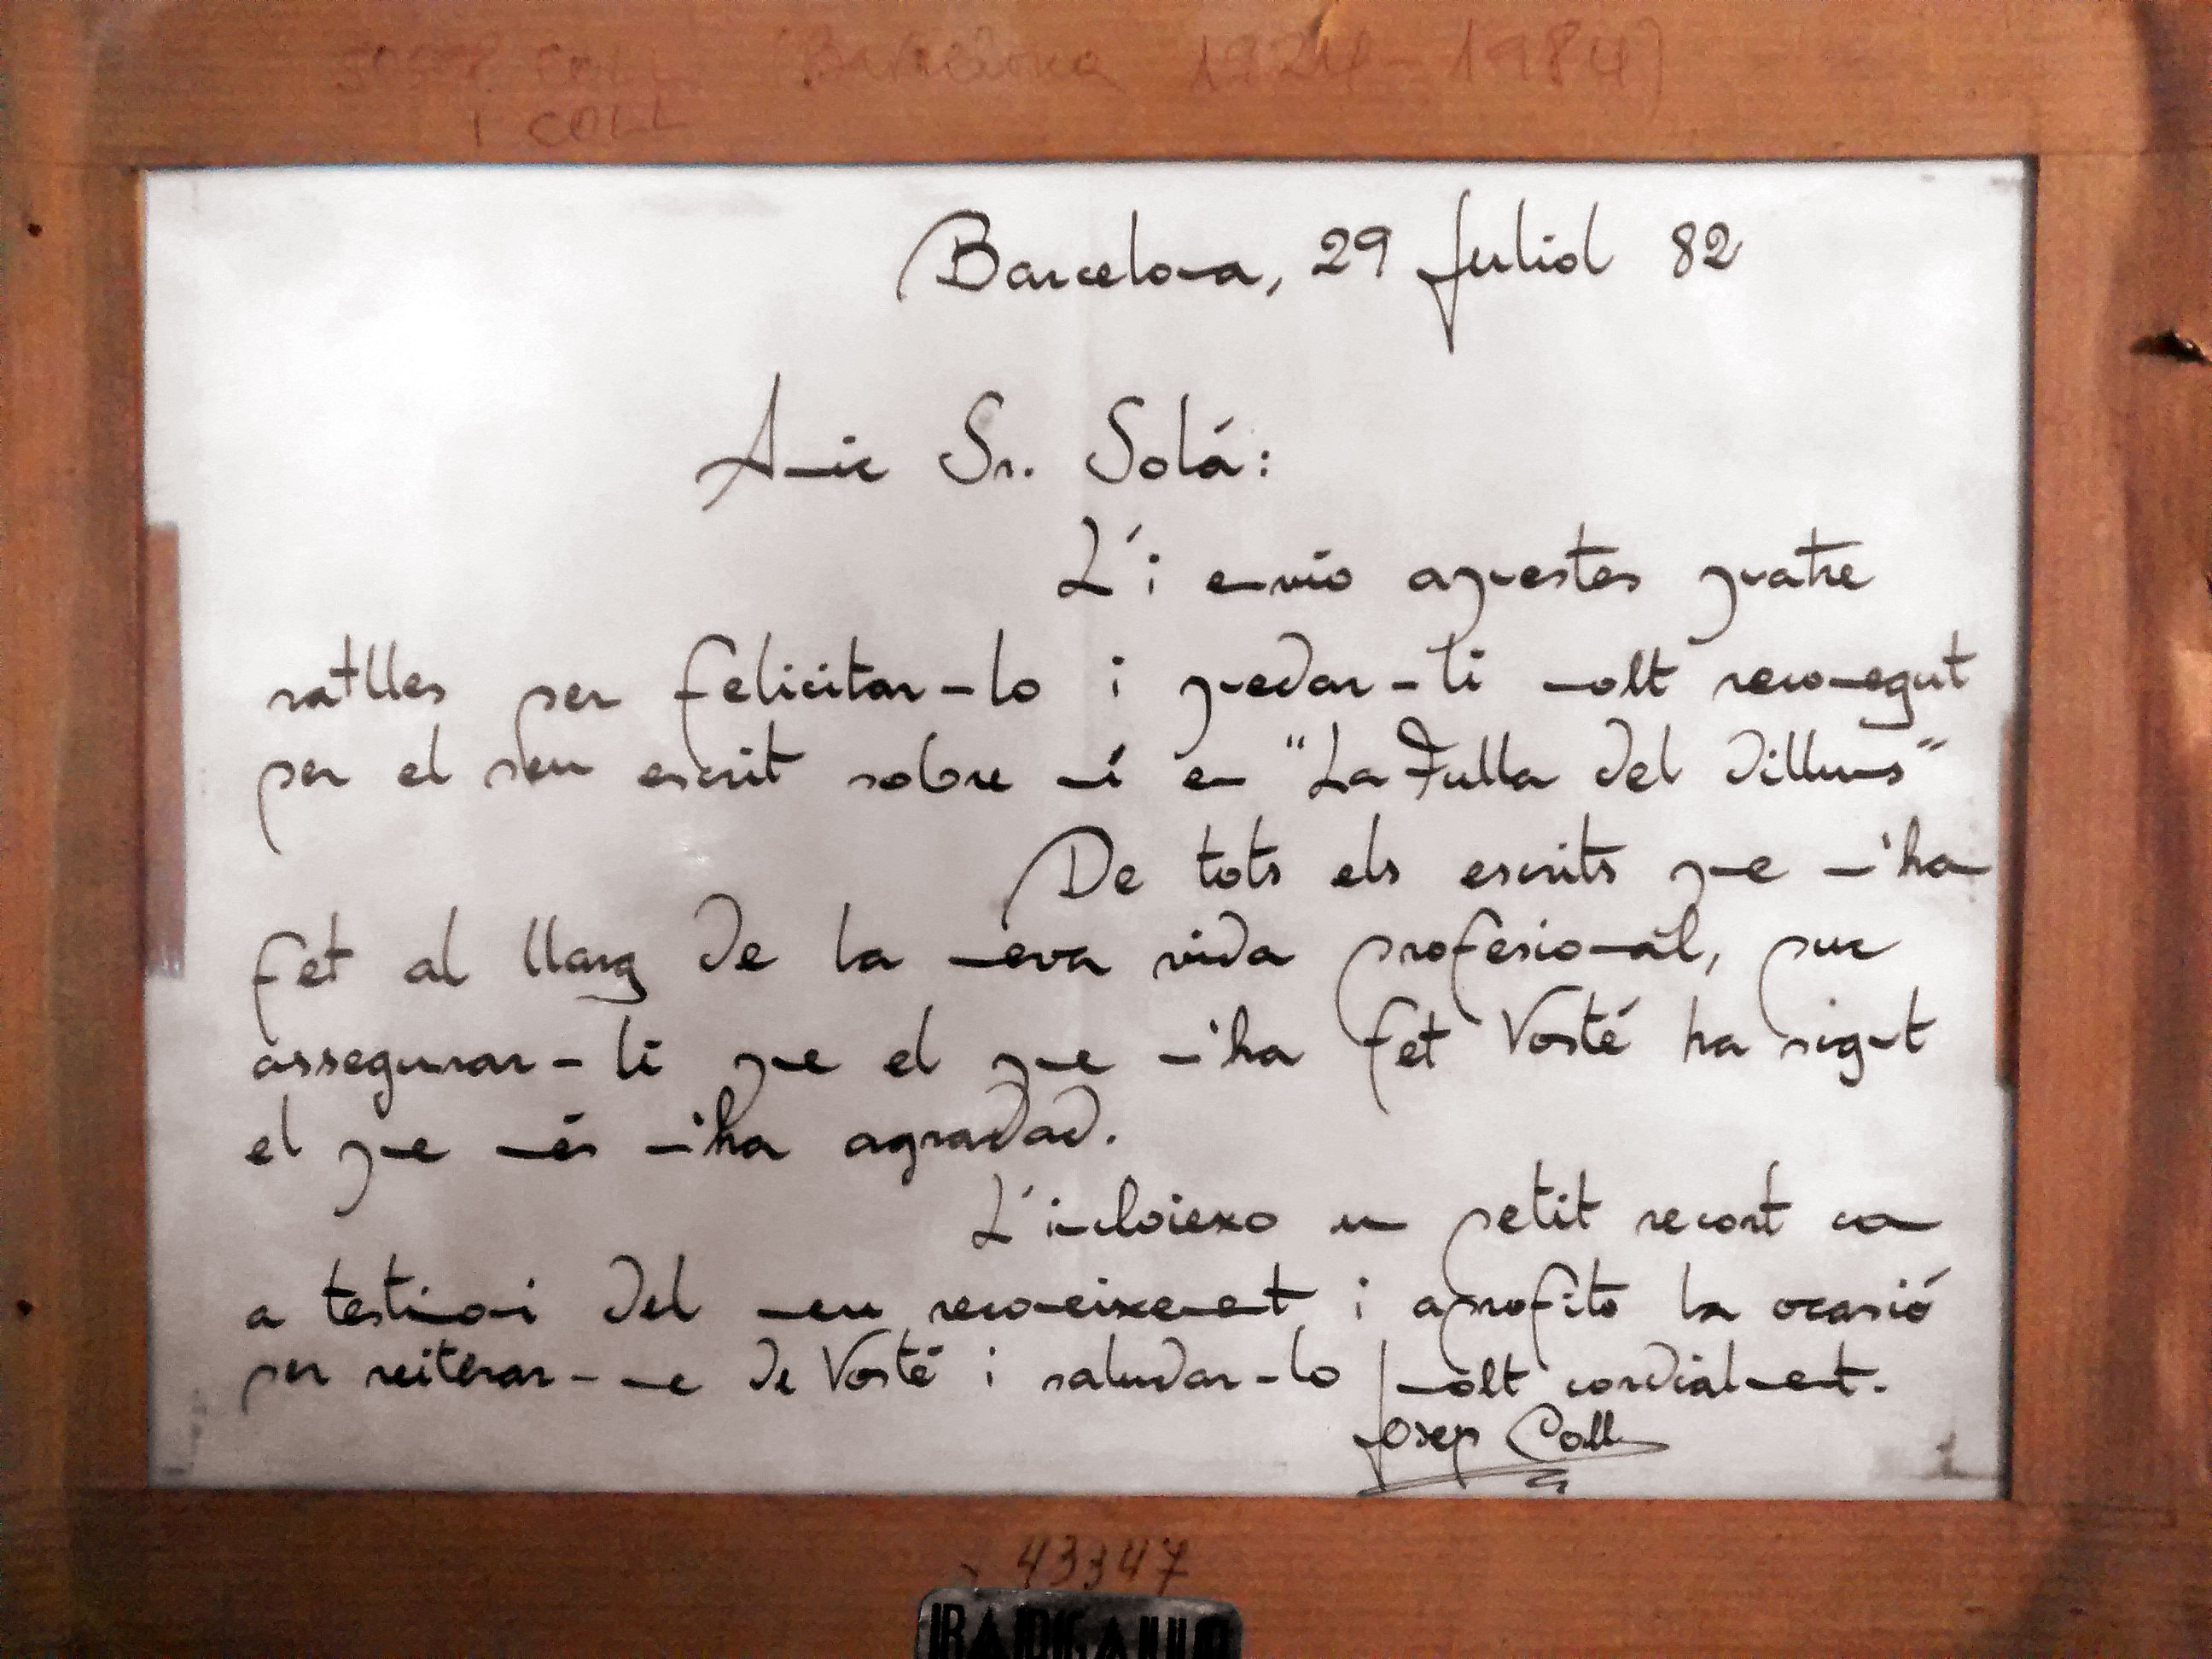 JOSEP COLL (Barcelona 1924-1984)
I COLL
Barcelona, 29 Juliol 82
Amic Sr. Solá:
L'i envio aquestes quatre
ratlles per felicitar-lo i quedar-li molt reconegut
per el seu escrit sobre mí en "La Fulla del dilluns"
De tots els escrits que m'han
fet al llarg de la meva vida profesional, puc
assegurar-li que el que m'ha fet Vosté ha sigut
el que més m'ha agradad.
L'incloiexo un petit recort com
a testimoni del meu reconeixement i aprofito la ocasió
per reiterar-me de Vosté i saludar-lo molt cordialment.
Josep Coll
43347